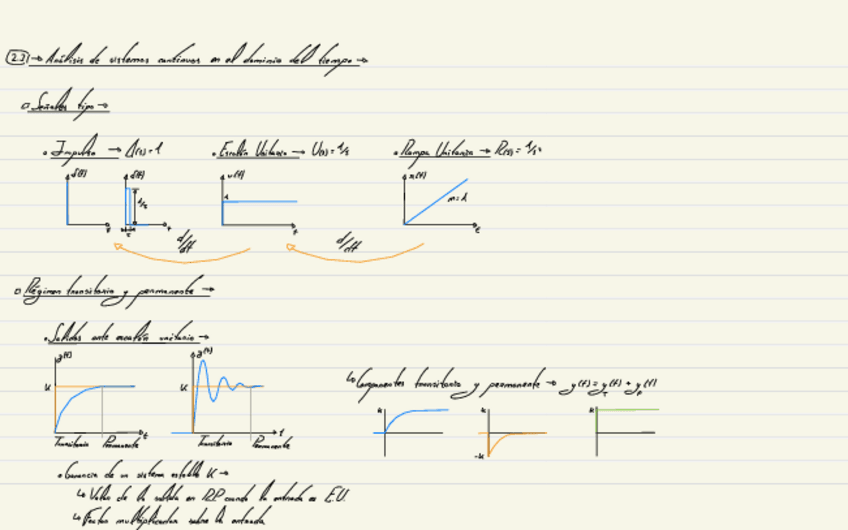 2.2 → Análisis de sistemas continuos en el dominio del tiempo →
Señales tipo →
• Impulso → Δ(s) = 1 • Escalón Unitario → U(s) = 1/s • Rampa Unitaria → R(s) = 1/s²
δ(t) δ(t) u(t) r(t)
1/τ 1 m=1
t τ t t t
d/dt d/dt
Régimen transitorio y permanente →
• Salidas ante escalón unitario →
y(t) y(t)
↳ Componentes transitoria y permanente → y(t) = y_T(t) + y_P(t)
K K K K K
-K
t t
Transitorio Permanente Transitorio Permanente
• Ganancia de un sistema estable K →
↳ Valor de la salida en R.P. cuando la entrada es E.U.
↳ Factor multiplicador sobre la entrada